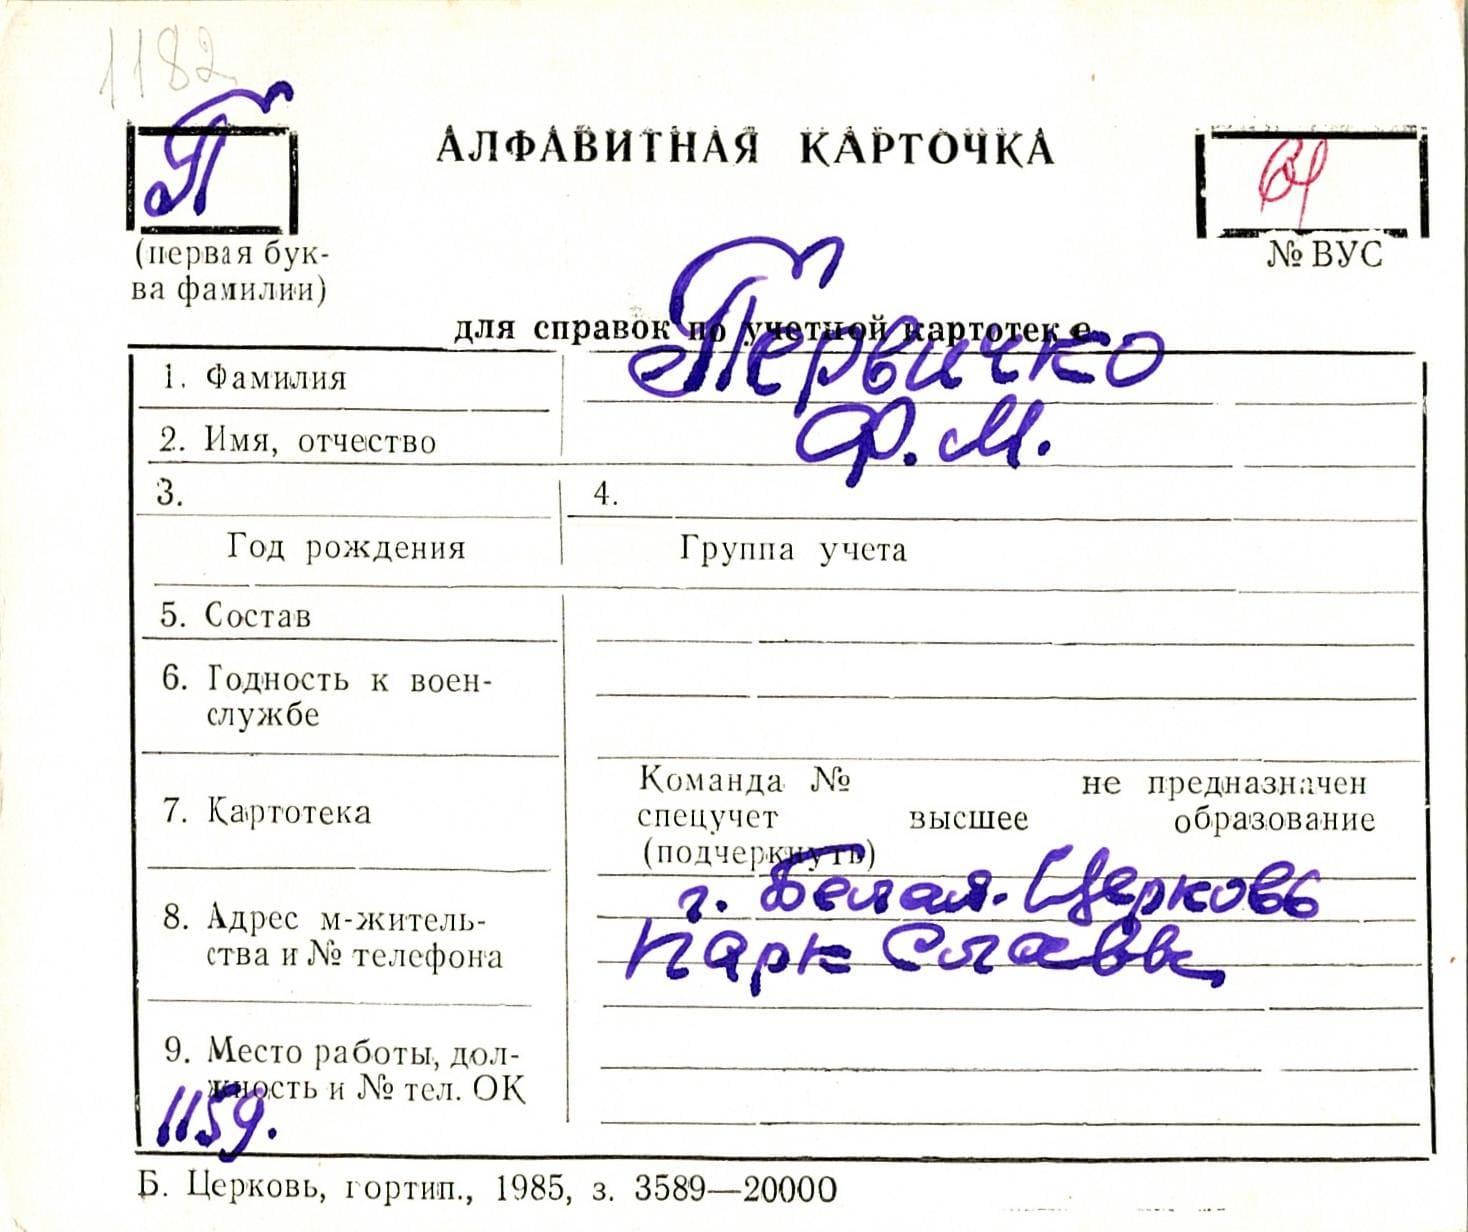 1182
П
АЛФАВИТНАЯ КАРТОЧКА
(первая бук-
ва фамилии)
№ ВУС
для справок по учетной картотеке
1. Фамилия
Первичко
2. Имя, отчество
Ф. М.
3.
4.
Год рождения
Группа учета
5. Состав
6. Годность к воен-
службе
7. Картотека
Команда № не предназначен
спецучет высшее образование
(подчеркнуть)
8. Адрес м-житель-
ства и № телефона
г. Белая-Церковь
Парк Славы
9. Место работы, дол-
жность и № тел. ОК
1159.
Б. Церковь, гортип., 1985, з. 3589—20000